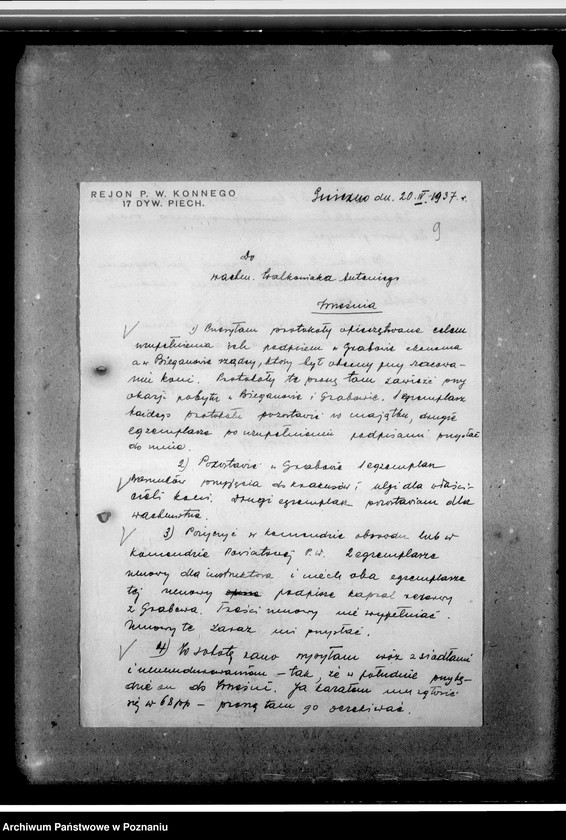 REJON P. W. KONNEGO
17 DYW. PIECH.
Gniezno dn. 20.IV.1937 r.
9
Do
wachm. Walkowiaka Antoniego
Września
1) Przesyłam protokóły opieczętowane celem
uzupełnienia ich podpisem w Grabowie ekonoma
a w Bieganowie rządcy, który był obecny przy szacowa-
niu koni. Protokóły te proszę tam zawieźć przy
okazji pobytu w Bieganowie i Grabowie. 1 egzemplarz
każdego protokółu pozostawić w majątku, drugie
egzemplarze po uzupełnieniu podpisami przysłać
do mnie.
2) Pozostawić w Grabowie 1 egzemplarz
warunków przyjęcia do krakusów i ulgi dla właści-
cieli koni. Drugi egzemplarz pozostawiam dla
wachmistrza.
3) Pożyczyć w komendzie obwodu lub w
komendzie Powiatowej P.W. 2 egzemplarze
umowy dla instruktora i niech oba egzemplarze
tej umowy podpisze kapral rezerwy
z Grabowa. Treści umowy nie wypełniać.
Umowy te zaraz mi przysłać.
4) W sobotę rano wysyłam wóz z siodłami
i umundurowaniem – tak, że w południe przyby-
dzie on do Wrześni. Ja kazałem mu zgłosić
się w 68 pp – proszę tam go oczekiwać.
Archiwum Państwowe w Poznaniu